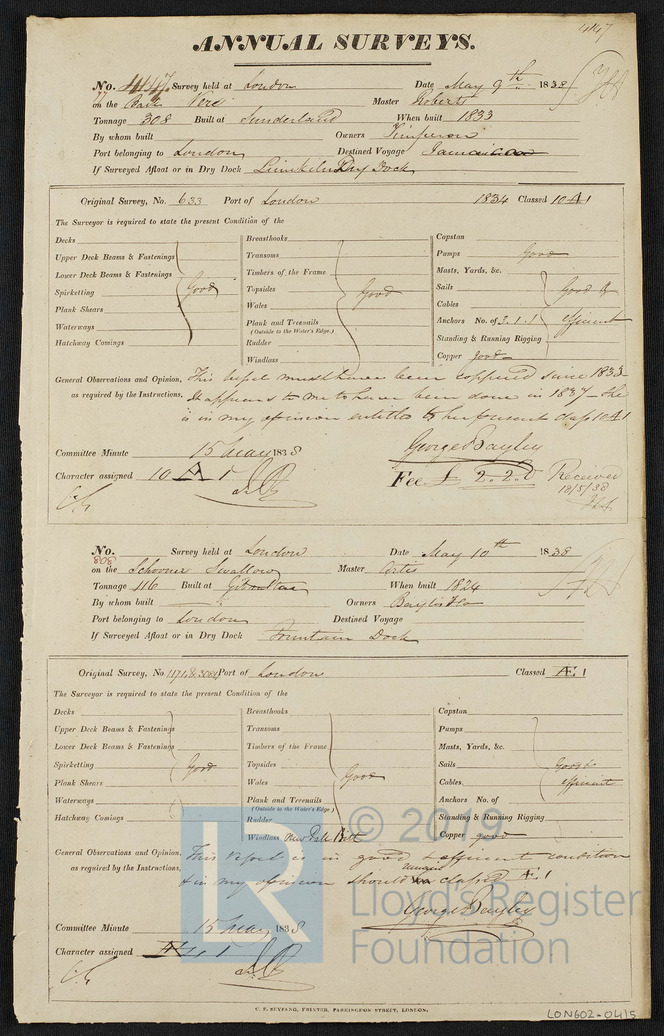 447
ANNUAL SURVEYS.
No. 447 Survey held at London Date May 9th 1838
on the Vere Master Roberts
Tonnage 308 Built at Sunderland When built 1833
By whom built Owners
Port belonging to London Destined Voyage Jamaica
If Surveyed Afloat or in Dry Dock Limekiln Dry Dock
Original Survey, No. 633 Port of London 1834 Classed 10 A 1
The Surveyor is required to state the present Condition of the
Decks Breasthooks Capstan
Upper Deck Beams & Fastenings Transoms Pumps Good
Lower Deck Beams & Fastenings Timbers of the Frame Masts, Yards, &c.
Spirketting Good Topsides Good Sails Good &
Plank Shears Wales Cables efficient
Waterways Plank and Treenails Anchors No. of 3.1.1
(Outside to the Water's Edge.)
Hatchway Comings Rudder Standing & Running Rigging
Windlass Copper good
General Observations and Opinion, This vessel must have been coppered since 1833
as required by the Instructions. It appears to me to have been done in 1837 - She
is in my opinion entitled to her present class 10 A 1
George Bayley
Committee Minute 15 May 1838
Character assigned 10 A 1 Fee £ 2.2.0 Received
12/5/38
No. 808 Survey held at London Date May 10th 1838
on the Schooner Swallow Master
Tonnage 116 Built at Gibraltar When built 1824
By whom built Owners
Port belonging to London Destined Voyage
If Surveyed Afloat or in Dry Dock Fountain Dock
Original Survey, No Port of London Classed Æ 1
The Surveyor is required to state the present Condition of the
Decks Breasthooks Capstan
Upper Deck Beams & Fastenings Transoms Pumps
Lower Deck Beams & Fastenings Timbers of the Frame Masts, Yards, &c.
Spirketting Good Topsides Good Sails Good &
Plank Shears Wales Cables efficient
Waterways Plank and Treenails Anchors No. of
(Outside to the Water's Edge.)
Hatchway Comings Rudder Standing & Running Rigging
Windlass New Bitt Copper good
General Observations and Opinion, This vessel is in good & efficient condition
as required by the Instructions. & in my opinion should remain classed Æ 1
George Bayley
Committee Minute 15 May 1838
Character assigned Æ 1
© 2019
LR
Lloyd's Register
Foundation
C. F. SEYFANG, PRINTER, FARRINGDON STREET, LONDON.
LON602-0415